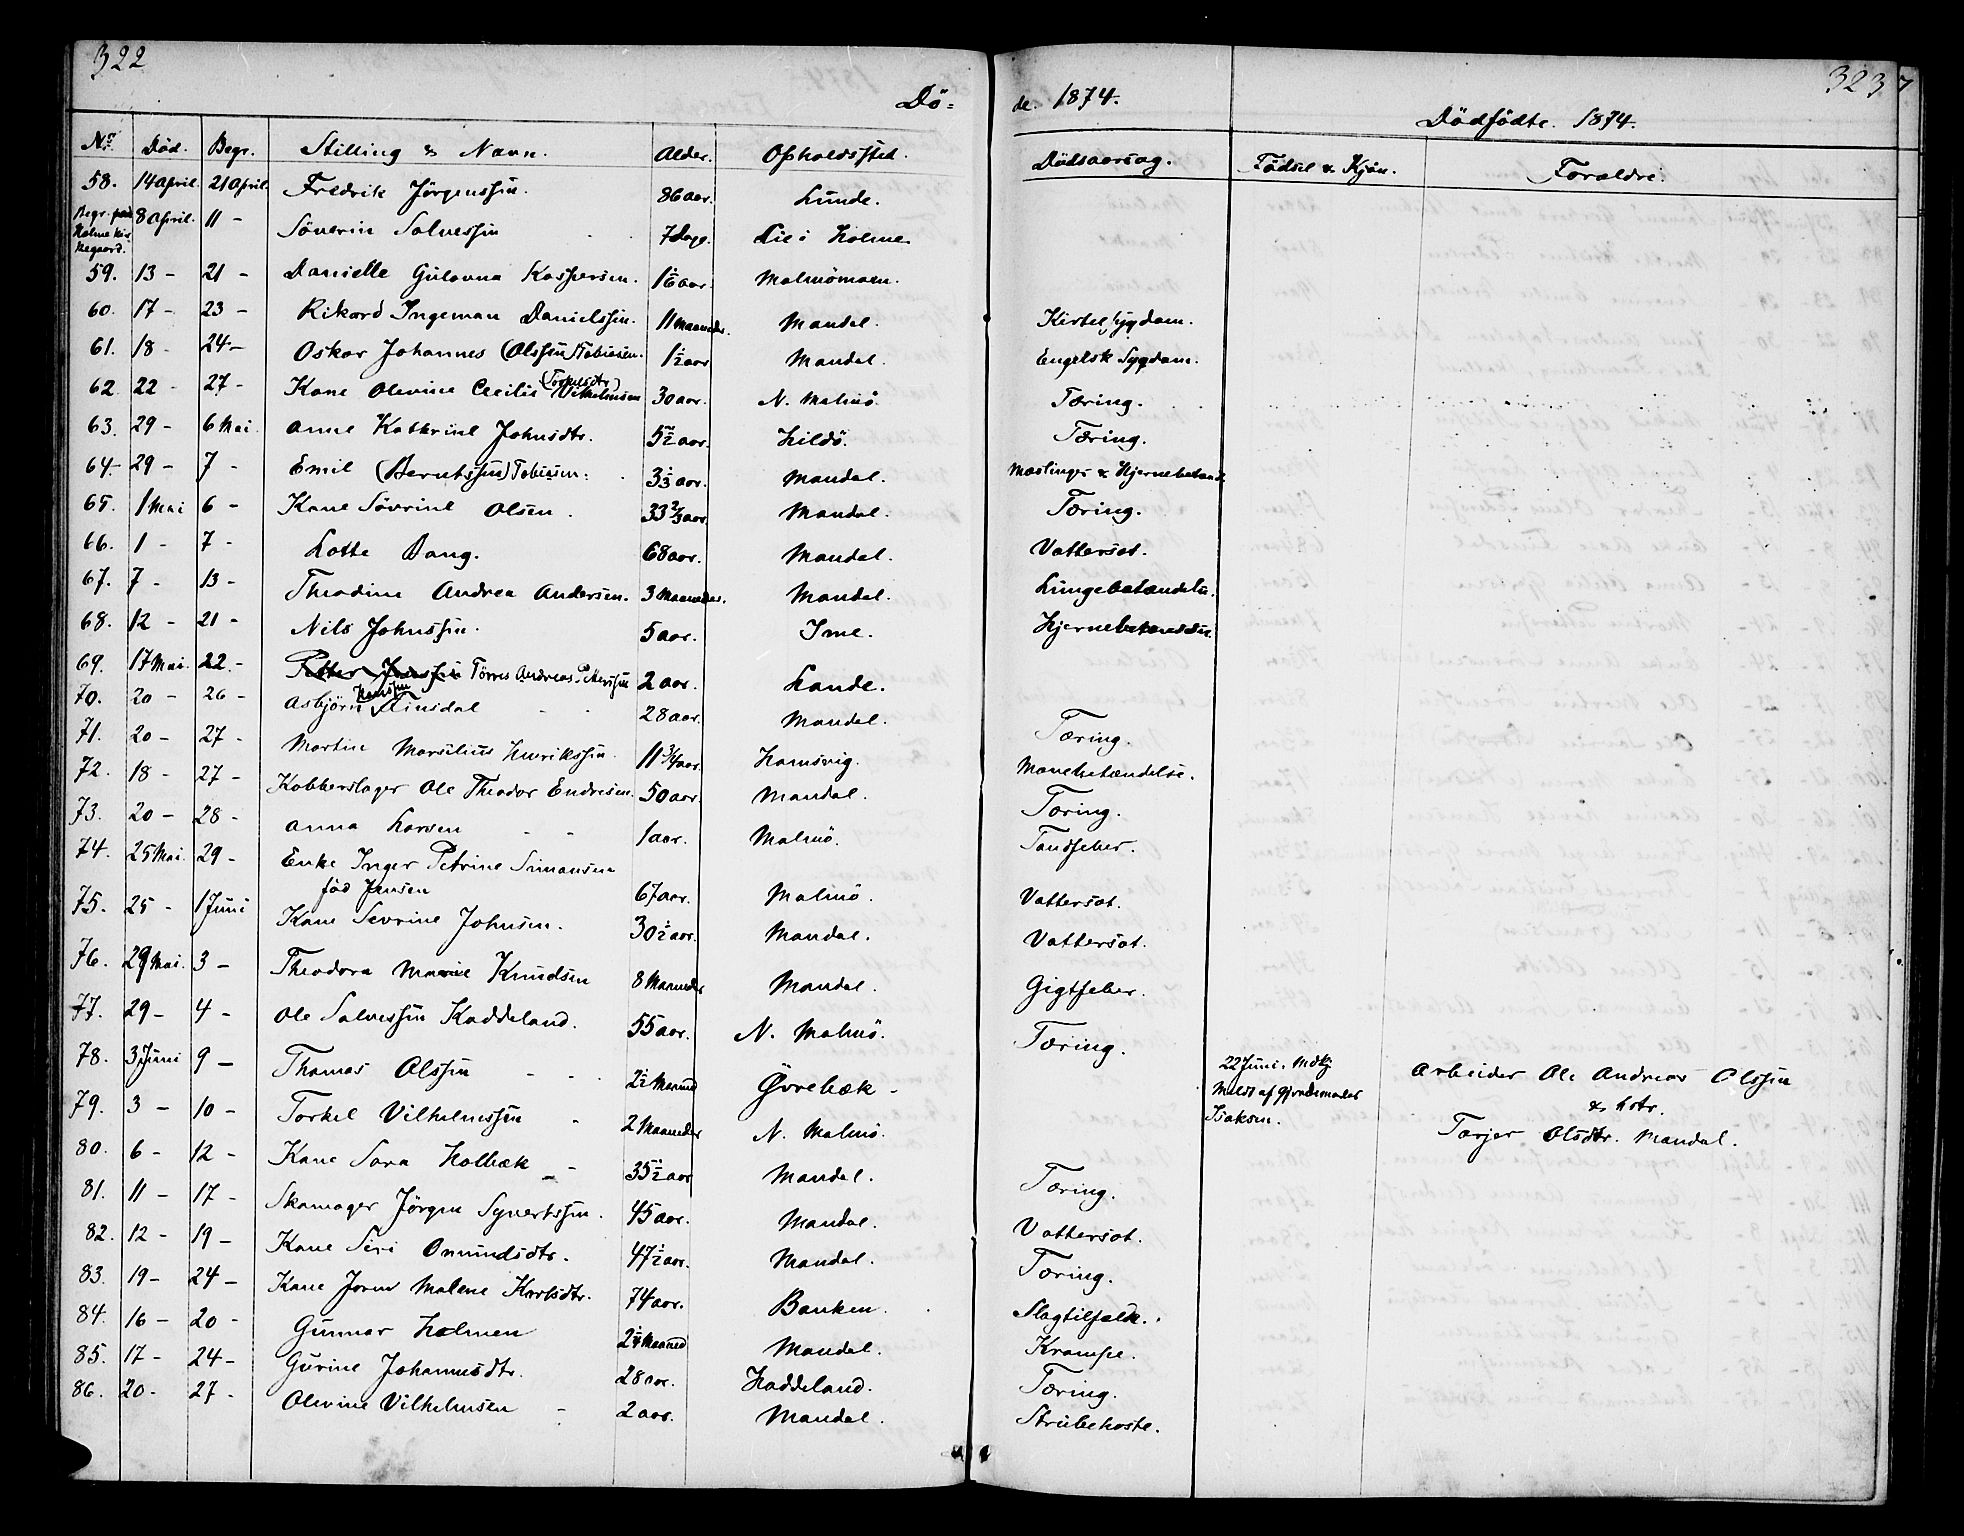 322
Dö=
de. 1874.
323
Dödfödte. 1874.
No. Död. Begr. Stilling & Navn. Alder. Opholdssted. Dödsaarsag. Födsel & Kjøn. Forældre.
58. 14 April. 21 April. Fredrik Jörgenssen. 86 aar. Lunde.
Begr. paa Holme Kirkegaard. 8 April. 11 - Söverin Salvessen 7 Dage. Lie i Holme
59. 13 - 21 - Danielle Gulovna Kaspersen. 1 1/6 aar. Malmömoen.
60. 17 - 23 - Rikard Ingeman Danielssen. 11 Maaneder. Mandal. Kirtelsygdom.
61. 18 - 24 - Oskar Johannes (Olssen) Tobiasen. 1 1/2 aar Mandal. Engelsk Sygdom.
62. 22 - 27 - Kone Olevine Cecilie (Torkelsdtr) Vilhelmsen 30 aar. N. Malmö. Tæring.
63. 29 - 6 Mai. Anne Kathrine Johnsdtr. 5 1/2 aar. Hildö. Tæring.
64 - 29 - 7 - Emil (Berntssen) Tobiasen. 3 1/3 aar. Mandal. Mæslinger & Hjernebetænd.
65. 1 Mai 6 - Kone Sövrine Olsen. 33 2/3 aar. Mandal. Tæring.
66. 1 - 7 - Lotte Bang. 68 aar. Mandal. Vattersot.
67. 7 - 13 - Theodine Andrea Andersen. 3 Maaneder. Mandal. Lungebetændelse.
68. 12 - 21 - Nils Johnssen. 5 aar. Ime. Hjernebetændelse
69. 17 Mai. 22. - Petter Jenssen Törres Andreas Pettersen 2 aar. Lande.
70. 20 - 26 - Asbjörn Hanssen Tinsdal 28 aar. Mandal. Tæring.
71. 20 - 27 - Martin Marselius Henrikssen. 11 3/4 aar. Homsvig. Mavebetændelse.
72. 18 - 27 - Kobberslager Ole Theodor Endresen. 50 aar. Mandal. Tæring.
73. 20 - 28 - Anna Larsen 1 aar. Malmö. Tandfeber.
74. 25 Mai. 29 - Enke Inger Petrine Simonsen
föd Jensen 67 aar. Malmö. Vattersot.
75. 25 - 1 Juni Kone Sevrine Johnsen. 30 1/2 aar. Mandal. Vattersot.
76. 29 Mai. 3 - Theodora Marine Knudsen 8 Maaneder Mandal. Gigtfeber.
77. 29 - 4 - Ole Salvessen Haddeland. 55 aar. N. Malmö. Tæring.
78. 3 Juni 9 - Thomas Olssen 2 1/2 Maaned Övrebæk -
22 Juni. Mdkj. Meldt af Gjordemoder Isaksen. Arbeider Ole Andreas Olssen
& hstr.
Torjer Olsdtr. Mandal.
79. 3 - 10 - Torkel Vilhelmssen 2 Maaneder N. Malmö.
80. 6 - 12 - Kone Sara Holbæk 35 1/2 aar Mandal. Tæring.
81. 11 - 17 - Skomager Jörgen Syvertssen. 45 aar. Mandal. Vattersot.
82. 12 - 19 - Kone Siri Omundsdtr. 47 1/2 aar. Mandal. Tæring.
83. 19 - 24 - Kone Joren Malene Karlsdtr. 74 aar. Banken. Slagtilfælde.
84. 16 - 20 - Gunnar Holmen 2 1/4 Maaned Mandal. Krampe.
85. 17 - 24 - Gurine Johannesdtr. 28 aar. Haddeland. Tæring.
86. 20 - 27 - Olevine Vilhelmsen 2 aar. Mandal. Strubehoste.